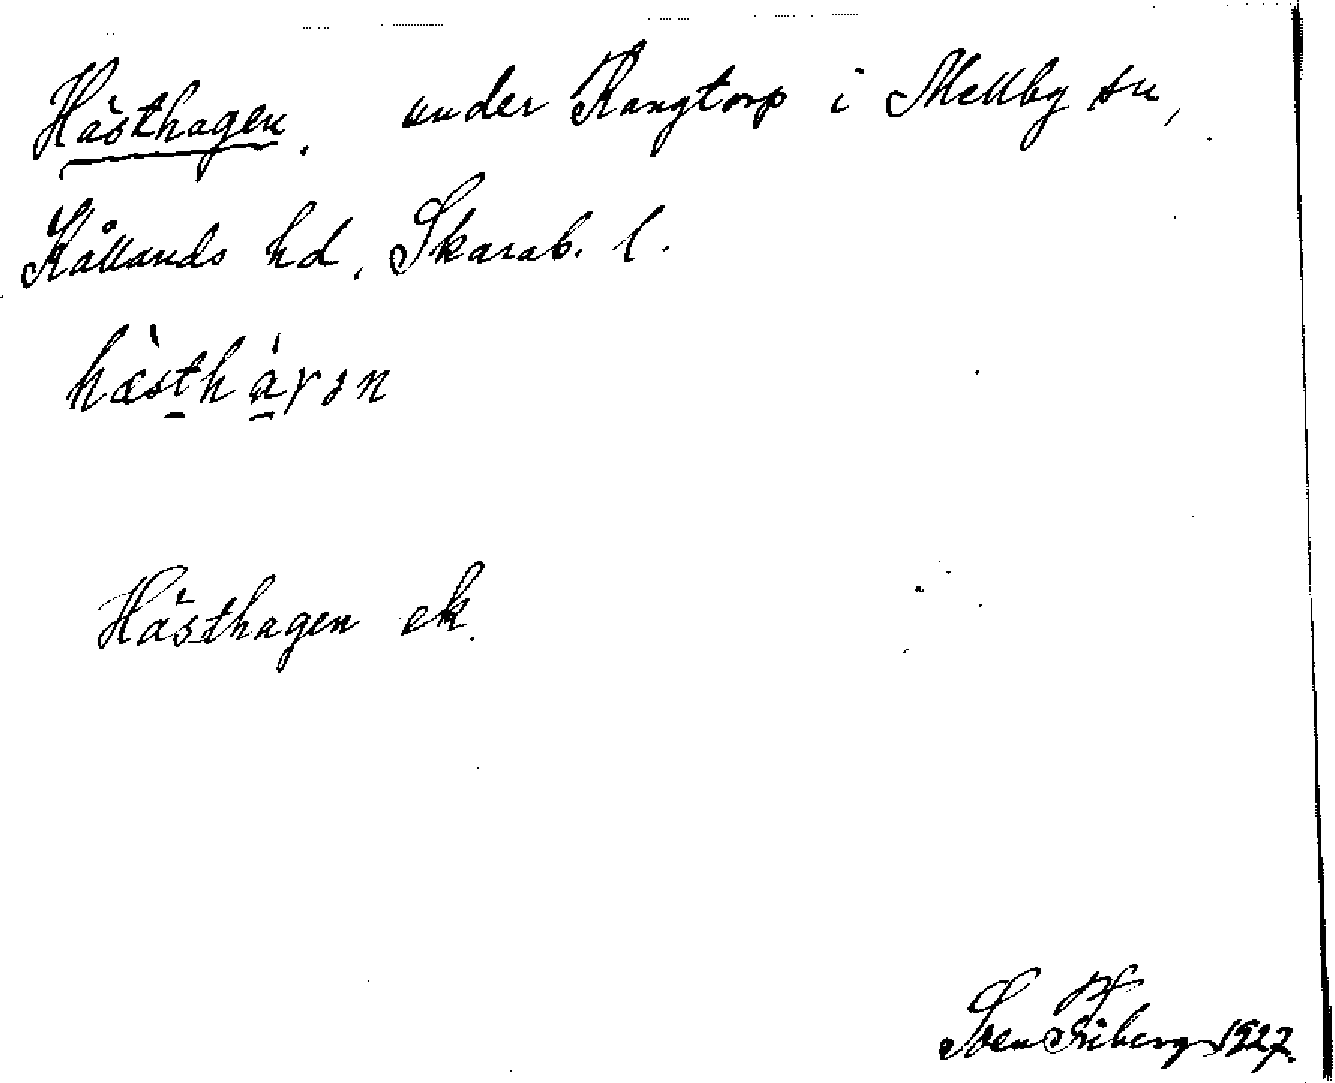 Hästhagen. under Rangtorp i Mellby sn,
Kållands hd. Skarab. l.
hæ̀stháγən
Hästhagen ek.
Sven Friberg 1927.